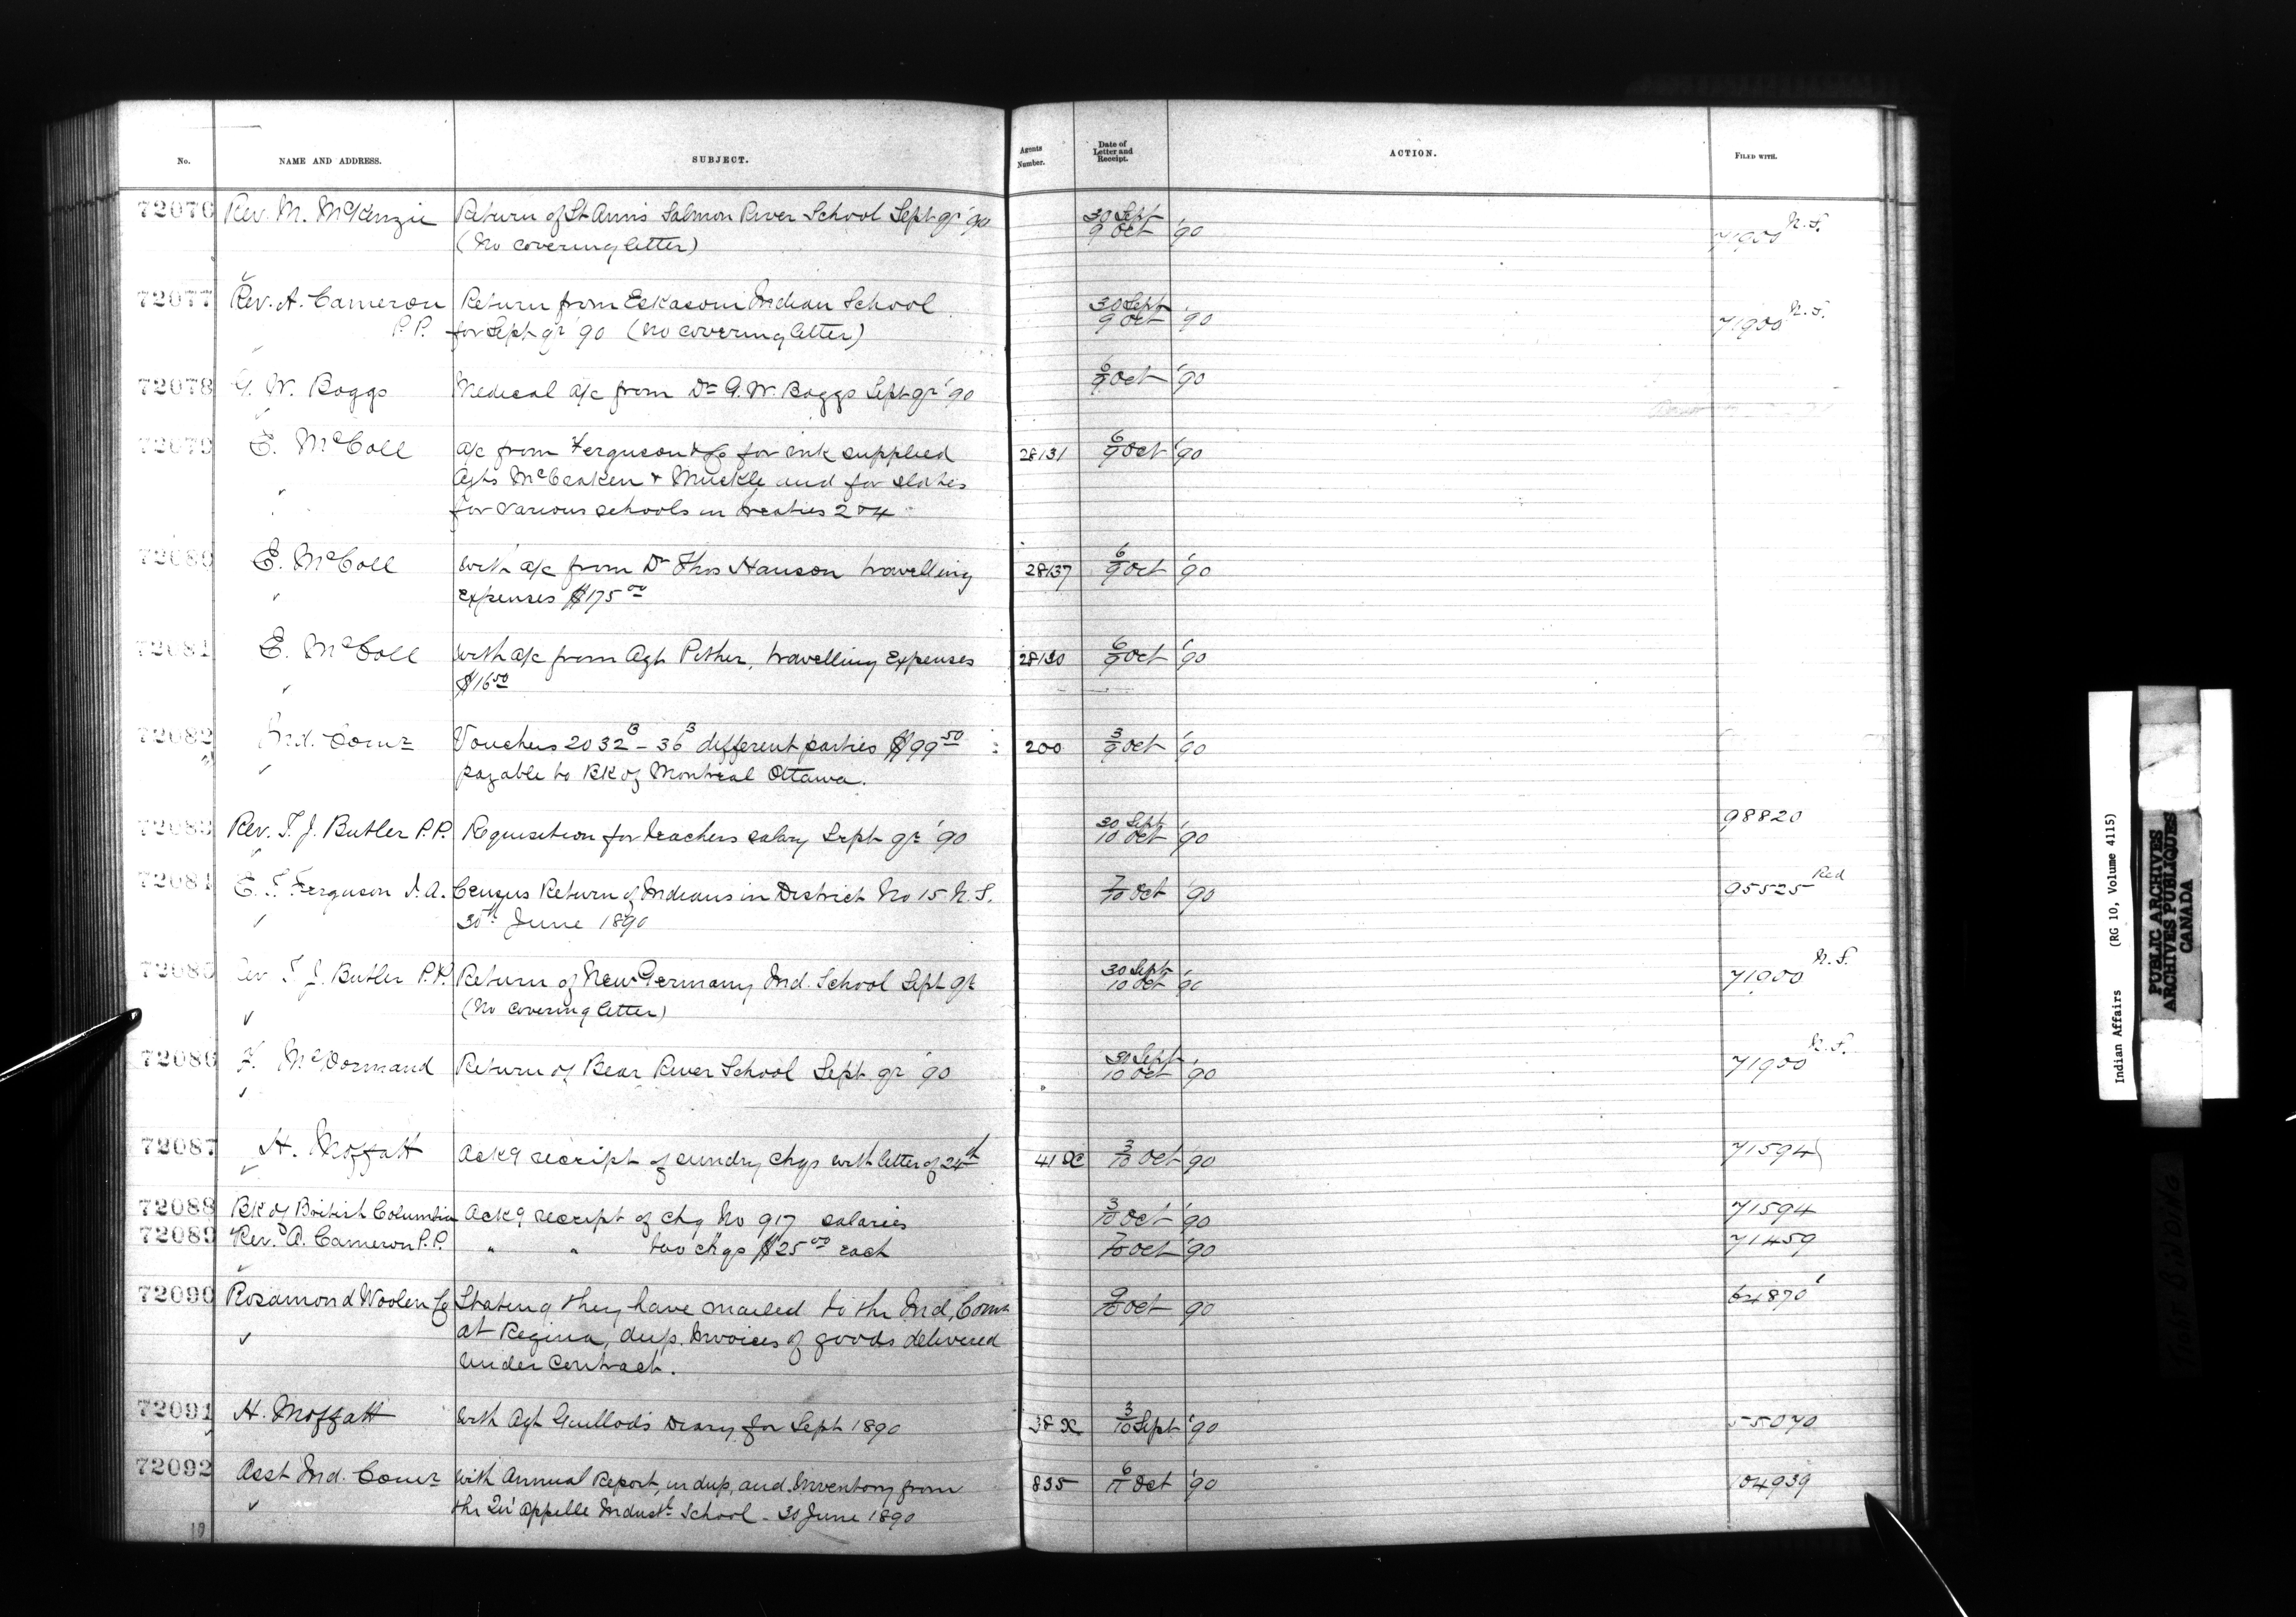 No. NAME AND ADDRESS. SUBJECT. Agents Number. Date of Letter and Receipt. ACTION. FILED WITH.
72076 Rev. M. McKenzie Return of St Anns Salmon River School Sept qr '90 30 Sept / 9 Oct '90 71900 N.S.
(No covering letter)
72077 Rev. A. Cameron Return from Eskasoni Indian School 30 Sept / 9 Oct '90 71900 N.S.
P.P. for Sept qr '90 (No covering letter)
72078 G. W. Boggs Medical a/c from Dr G. W. Boggs Sept qr '90 6/9 Oct '90
72079 E. McColl a/c from Ferguson & Co for ink supplied 28131 6/9 Oct '90
Agts McCraken & Muckle and for slates
for various schools in treaties 2 & 4
72080 E. McColl with a/c from Dr Thos Hanson travelling 28137 6/9 Oct '90
expenses $175 00
72081 E. McColl with a/c from Agt Pither, travelling expenses 28130 6/9 Oct '90
$16 50
72082 Ind. Comr Vouchers 2032 B - 36 B different parties $99 50 200 3/9 Oct '90
payable to BK of Montreal Ottawa.
72083 Rev. T. J. Butler P.P. Requisition for teachers salary Sept qr '90 30 Sept / 10 Oct '90 98820
72084 E. T. Ferguson I.A. Census Return of Indians in District No 15 N.S. 7/10 Oct '90 95525 Red
30th June 1890
72085 Rev T. J. Butler P.P. Return of New Germany Ind. School Sept qr 30 Sept / 10 Oct '90 71900 N.S.
(No covering letter)
72086 F. McDormand Return of Bear River School Sept qr '90 30 Sept / 10 Oct '90 71900 N.S.
72087 H. Moffatt Ackg receipt of sundry chqs with letter of 24th 41 3/10 Oct '90 71594
72088 BK of British Columbia Ackg receipt of chq No 917 salaries 3/10 Oct '90 71594
72089 Rev. A. Cameron P.P. " " two chqs $25 00 each 7/10 Oct '90 71459
72090 Rosamond Woolen Co Stating they have mailed to the Ind. Comr 9/10 Oct '90 64870
at Regina, dup. Invoices of goods delivered
under contract.
72091 H. Moffatt with Agt Guillod's Diary for Sept 1890 38 3/10 Sept '90 55070
72092 Asst Ind. Comr with Annual Report, in dup, and Inventory from 835 6/11 Oct '90 104939
the Qu'Appelle Indust School - 30 June 1890
Indian Affairs (RG 10, Volume 4115)
PUBLIC ARCHIVES
ARCHIVES PUBLIQUES
CANADA